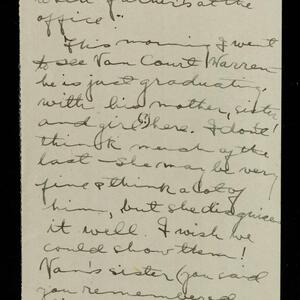 at the
office.
This morning I went
to see Van Court Warren
he is just graduating.
with his mother, sister
and girl(?) here. I don't
think much of the
last – she may be very
fine & think a lot of
him, but she disguises
it well. I wish we
could show them!
Van's sister (you said
you remembered